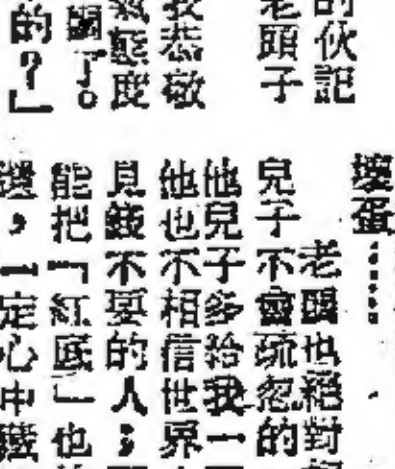 的伙記
老頭子
恭敬
氣態度
了。
的?」
壞蛋……
老頭也絕對
兒子不會疏忽的
他兒子多給我一
他也不相信世界
見錢不要的人;
能把「紅底」也
邊,一定心中